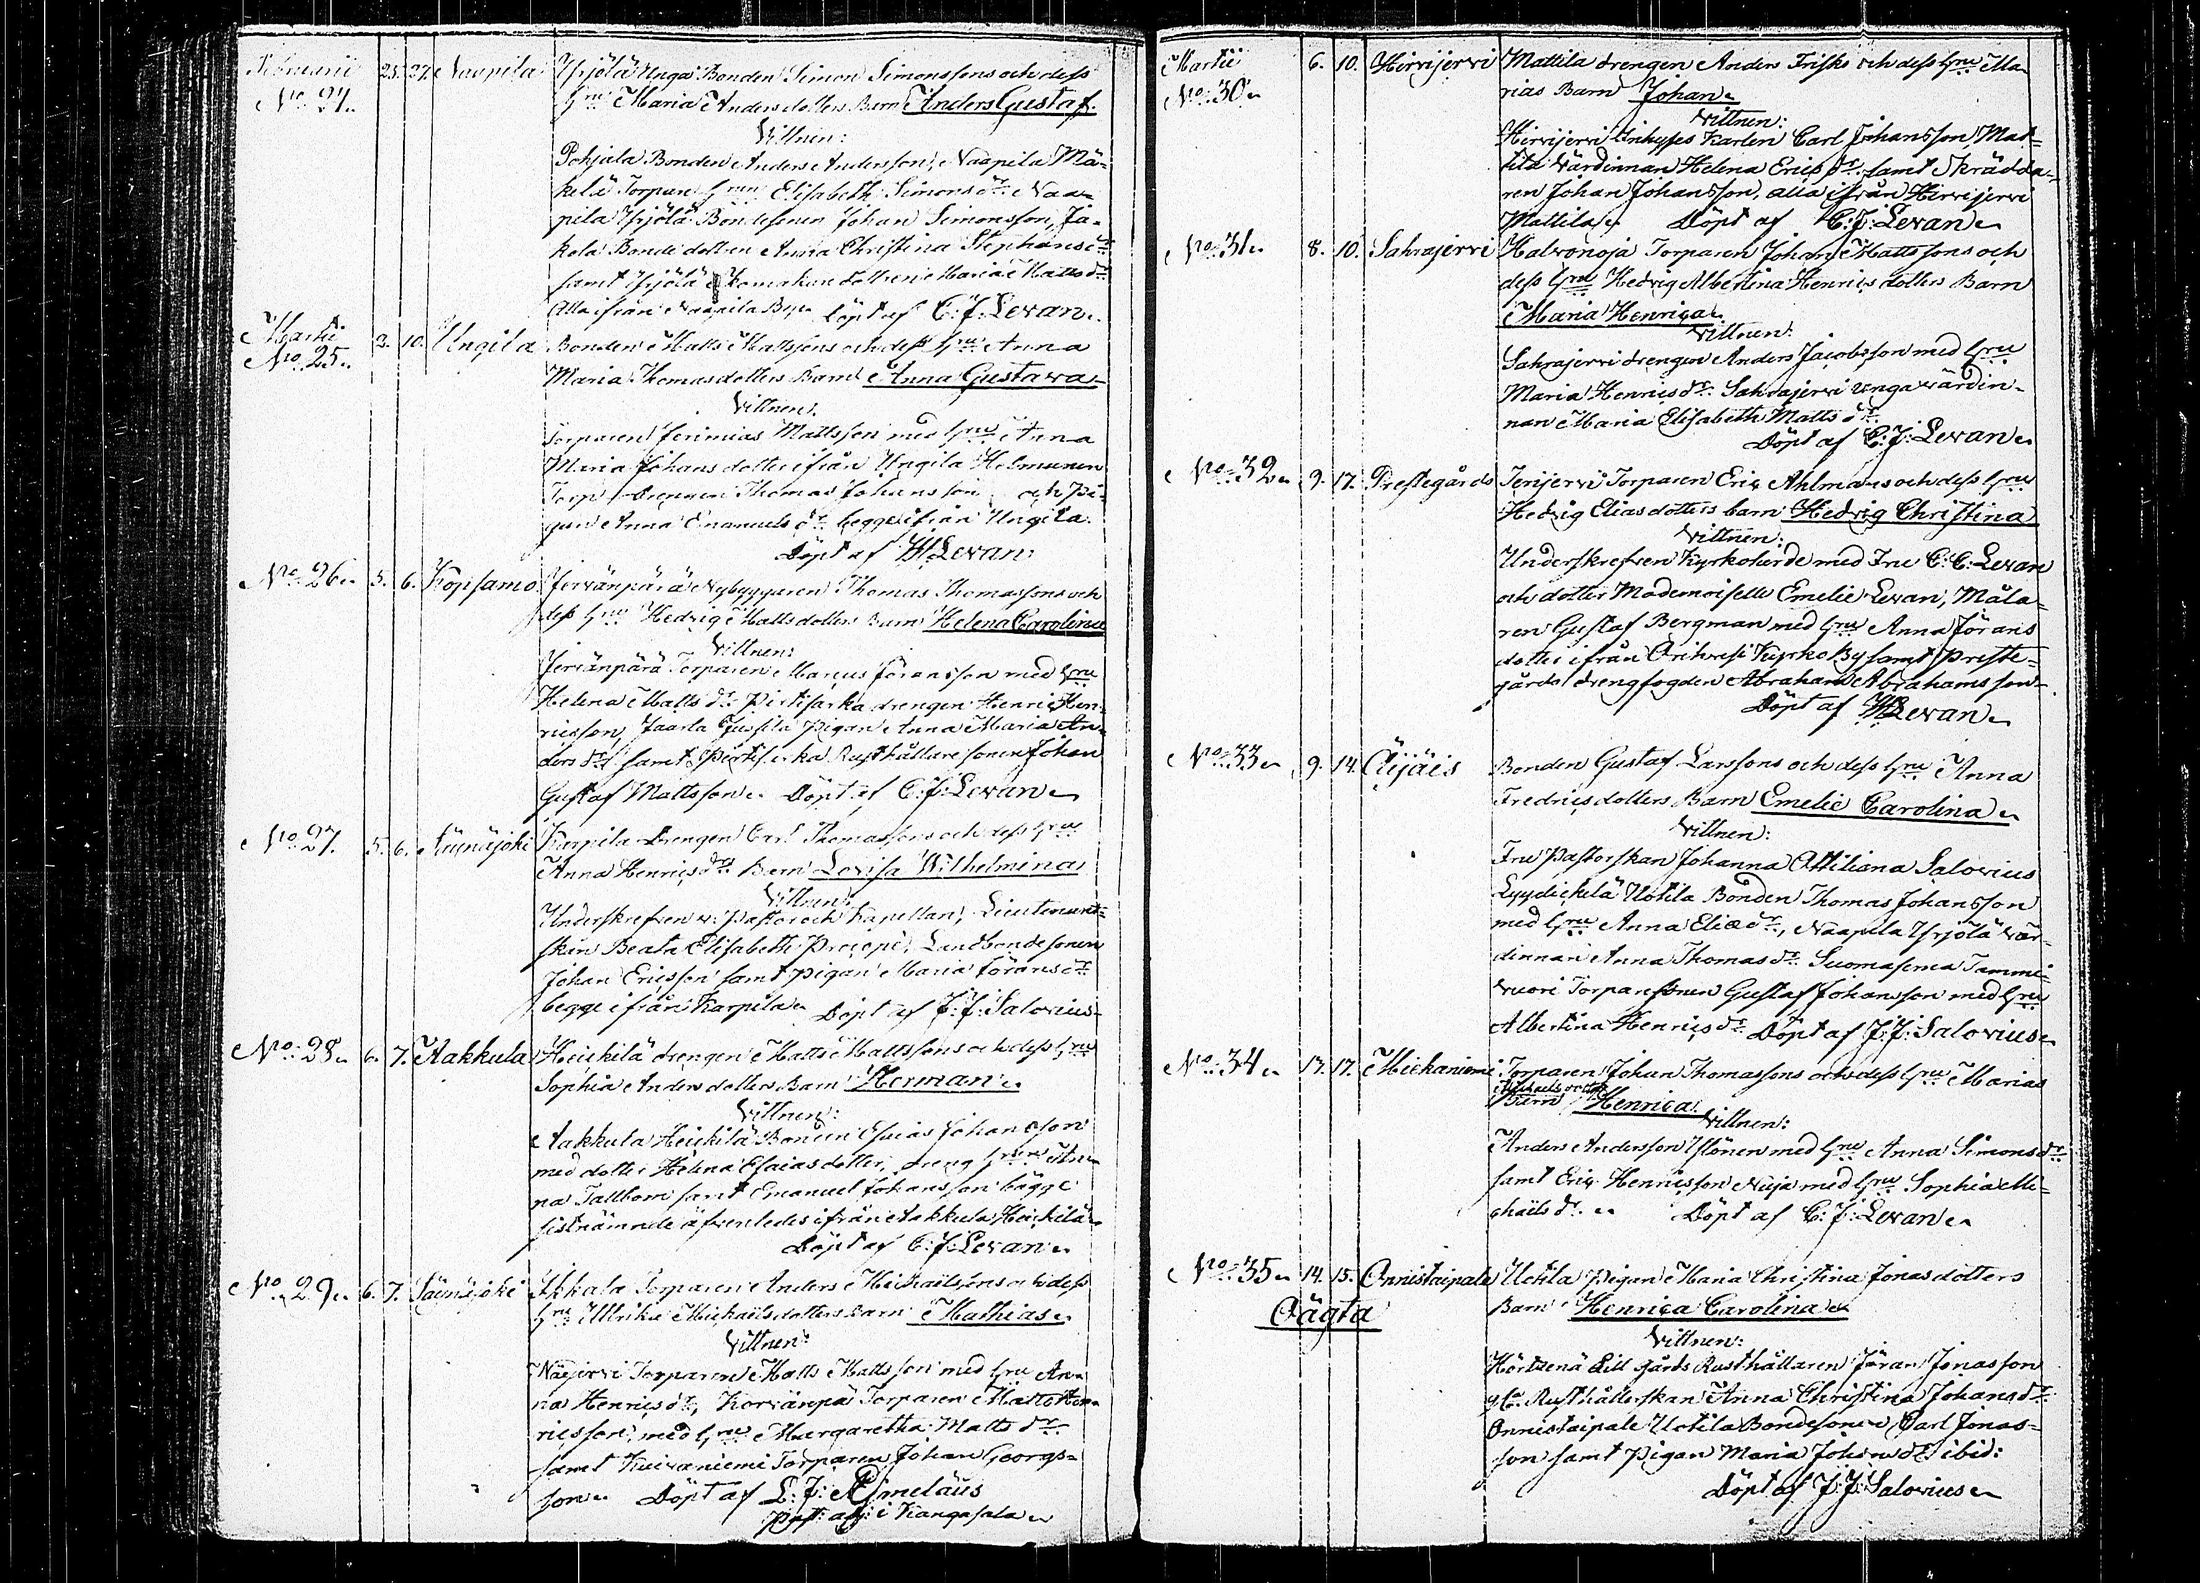 Februarii 25. 27. Naapila Yrjölä Unga Bonden Simon Simonssons och dess
No: 24. Hru Maria Andersdotters Barn Anders Gustaf.
Vittnen:
Pohjala Bonden Anders Andersson, Naapila Mä-
kelä Torpare Hrun Elisabeth Simons dr Naa-
pila Yrjölä Bondesonen Johan Simonsson, Ja-
kola Bonde dottren Anna Christina Stephans dr
samt Yrjölä dottren Maria Matts dr
Alla ifrån Naapila By. Döpt af C: J: Levan.
Martii 3. 10. Ungila Bonden Matts Mattssons och dess Hru Anna
No: 25. Maria Thomasdotters Barn Anna Gustava
Vittnen:
Torparen Jerimias Mattsson med Hru Anna
Maria Johans dotter ifrån Ungila Helmunen
Torp, Drengen Thomas Johansson och Pi-
gan Anna Emanuels dr begge ifrån Ungila.
Döpt af Levan.
No: 26. 5. 6. Kopsamo Jervänpärä Nybyggaren Thomas Thomassons och
dess Hru Hedvig Mattsdotters Barn Helena Carolina
Vittnen:
Jervänpärä Torparen Marcus Göransson med Hru
Helena Matts dr Pirttisarka drengen Henric Hen-
ricsson, Jaarla Jussila Pigan Anna Maria An-
ders dr samt Pirttisarka Rusthållare sonen Johan
Gustaf Mattsson. Döpt af C: J: Levan.
No: 27. 5. 6. Säynäjoki Karpila Drengen Carl Thomassons och dess Hru
Anna Henrics dr Barn Lovisa Wilhelmina
Vittnen:
Underskrefven v: Pastor och Kapellan, Lieutenant-
skan Beata Elisabeth Procopé, Landbondesonen
Johan Ericsson samt Pigan Maria Görans dr
begge ifrån Karpila. Döpt af J: J: Salovius.
No: 28. 6. 7. Aakkula Heickilä drengen Matts Mattssons och dess Hru
Sophia Andersdotters Barn Herman.
Vittnen:
Aakkula Heickilä Bonden Esaias Johansson
med dotter Helena Esaiasdotter, dreng Hrun An-
na Tallbom samt Emanuel Johansson bägge
sistnämnde äfvenledes ifrån Aakkula Heickilä.
Döpt af C: J: Levan.
No: 29. 6. 7. Säynäjoki Ikkala Torparen Anders Michaëlssons och dess
Hru Ulrika Michaëlsdotters Barn Mathias.
Vittnen:
Torparen Matts Mattsson med Hru An-
na Henrics dr, Korvänpä Torparen Matts Hen-
ricsson med Hru Margaretha Matts dr
samt Kuivaniemi Torparen Johan Georgs-
son. Döpt af L: J: Ahmelæus
Past: adj: i Kangasala.
Martii 6. 10. Hirvijervi Mattila drengen Anders Frisks och dess Hru Ma-
No: 30. rias Barn Johan.
Vittnen:
Hirvijervi Inhyses Karlen Carl Johansson, Mat-
tila Värdinnan Helena Erics dr samt Skrädda-
ren Johan Johansson, alla ifrån Hirvijervi
Mattila. Döpt af C: J: Levan.
No: 31. 8. 10. Sahrajervi Halvonoja Torparen Johan Mattssons och
dess Hru Hedvig Albertina Henricsdotters Barn
Maria Henrica.
Vittnen:
Sahrajervi drengen Anders Jacobsson med Hru
Maria Henrics dr Sahrajervi Unga värdin-
nan Maria Elisabeth Matts dr
Döpt af C: J: Levan.
No: 32. 9. 17. Prestegårds Jerijervi Torparen Eric Ahlmans och dess Hru
Hedvig Eliasdotters barn Hedvig Christina
Vittnen:
Underskrefven Kyrkoherde med Fru C: C: Levan
och dotter Mademoiselle Emelie Levan, Måla-
ren Gustaf Bergman med Hru Anna Görans
dotter ifrån Orihvesi Kyrko By samt Preste-
gårds drengfogden Abraham Abrahamsson.
Döpt af Levan.
No: 33. 9. 14. Äijäis Bonden Gustaf Larssons och dess Hru Anna
Fredricsdotters Barn Emelie Carolina.
Vittnen:
Fru Pastorskan Johanna Attiliana Salovius
Lyydickilä Uotila Bonden Thomas Johansson
med Hru Anna Eliæ dr, Naapila Yrjölä Vär-
dinnan Anna Thomas dr Suomasema Tammi-
vuori Torparesonen Gustaf Johansson med Hru
Albertina Henrics dr Döpt af J: J: Salovius.
No: 34. 13. 17. Hiekaniemi Torparen Johan Thomassons och dess Hru Marias
Michaels dotter
Barn Henrica.
Vittnen:
Anders Andersson Ylönen med Hru Anna Simons dr
samt Eric Henricsson Nuja med Hru Sophia Mi-
chaëls dr. Döpt af C: J: Levan.
No: 35. 14. 15. Onnistaipale Uotila Pigan Maria Christina Jonasdotters
Oägta Barn Henrica Carolina.
Vittnen:
Hörtsenä Lill gårds Rusthållaren Jöran Jonasson
Rusthållerskan Anna Christina Johans dr
Onnistaipale Uotila Bondesonen Carl Jonas-
son samt Pigan Maria Johans dr ibid:
Döpt af J: J: Salovius.